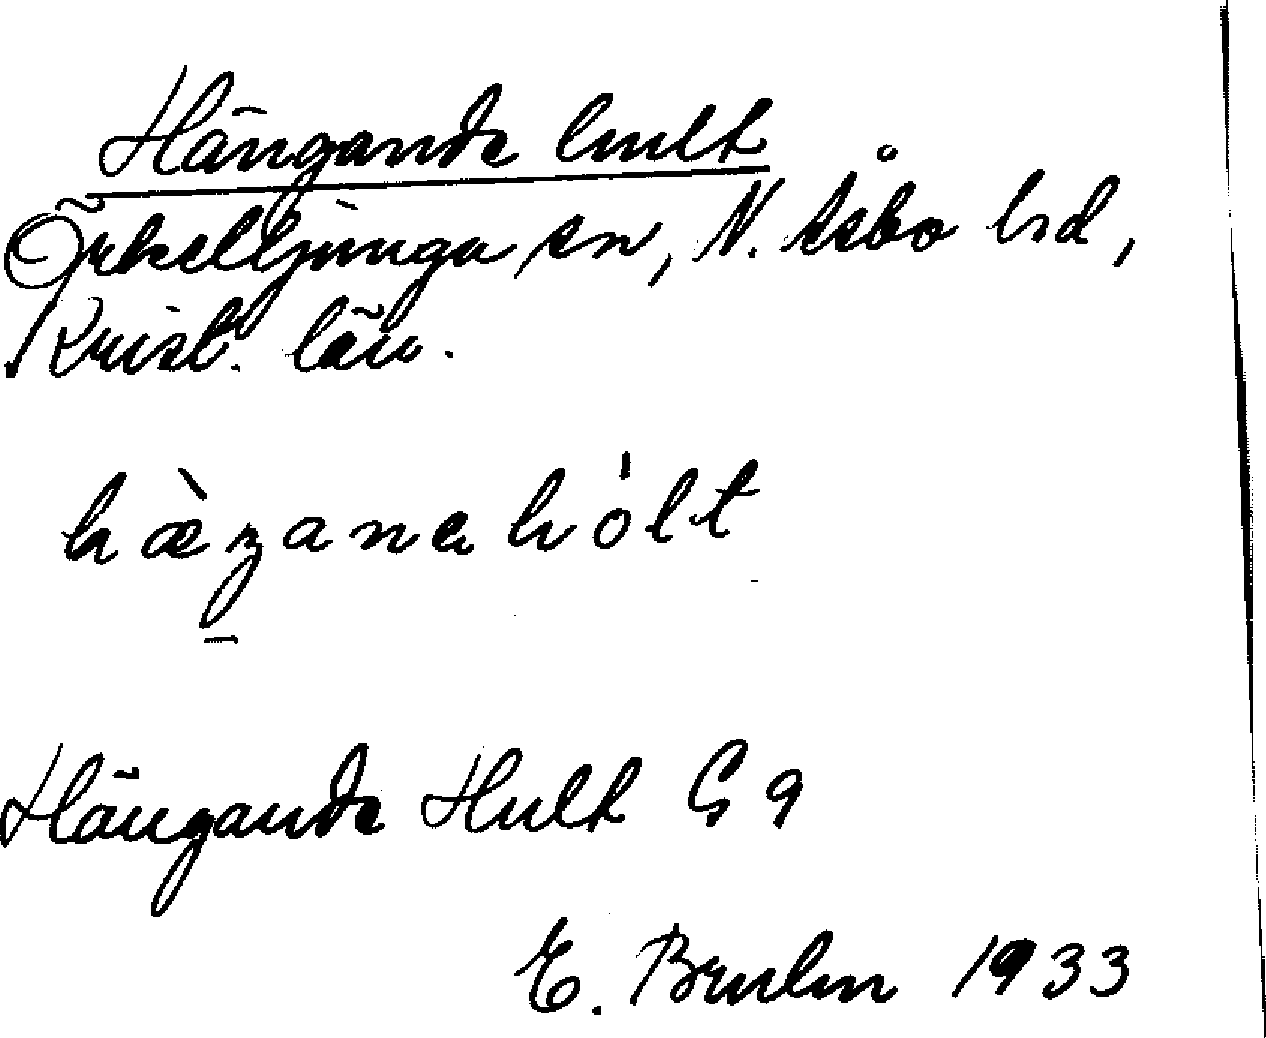 Hängande hult
Örkelljunga sn, N. Åsbo hd,
Krist. län.
hæ̀ŋanehólt
Hängande Hult G 9
E. Brulin 1933